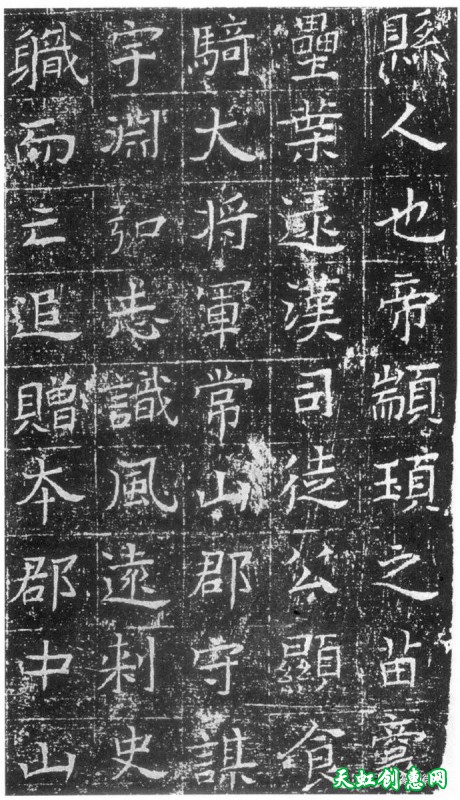 縣人也帝顓頊之苗裔
壘葉逮漢司徒公顯
騎大将軍常山郡守謀
宇淵弘志識風遠刺史
軄而亡追贈本郡中山
天虹创惠网